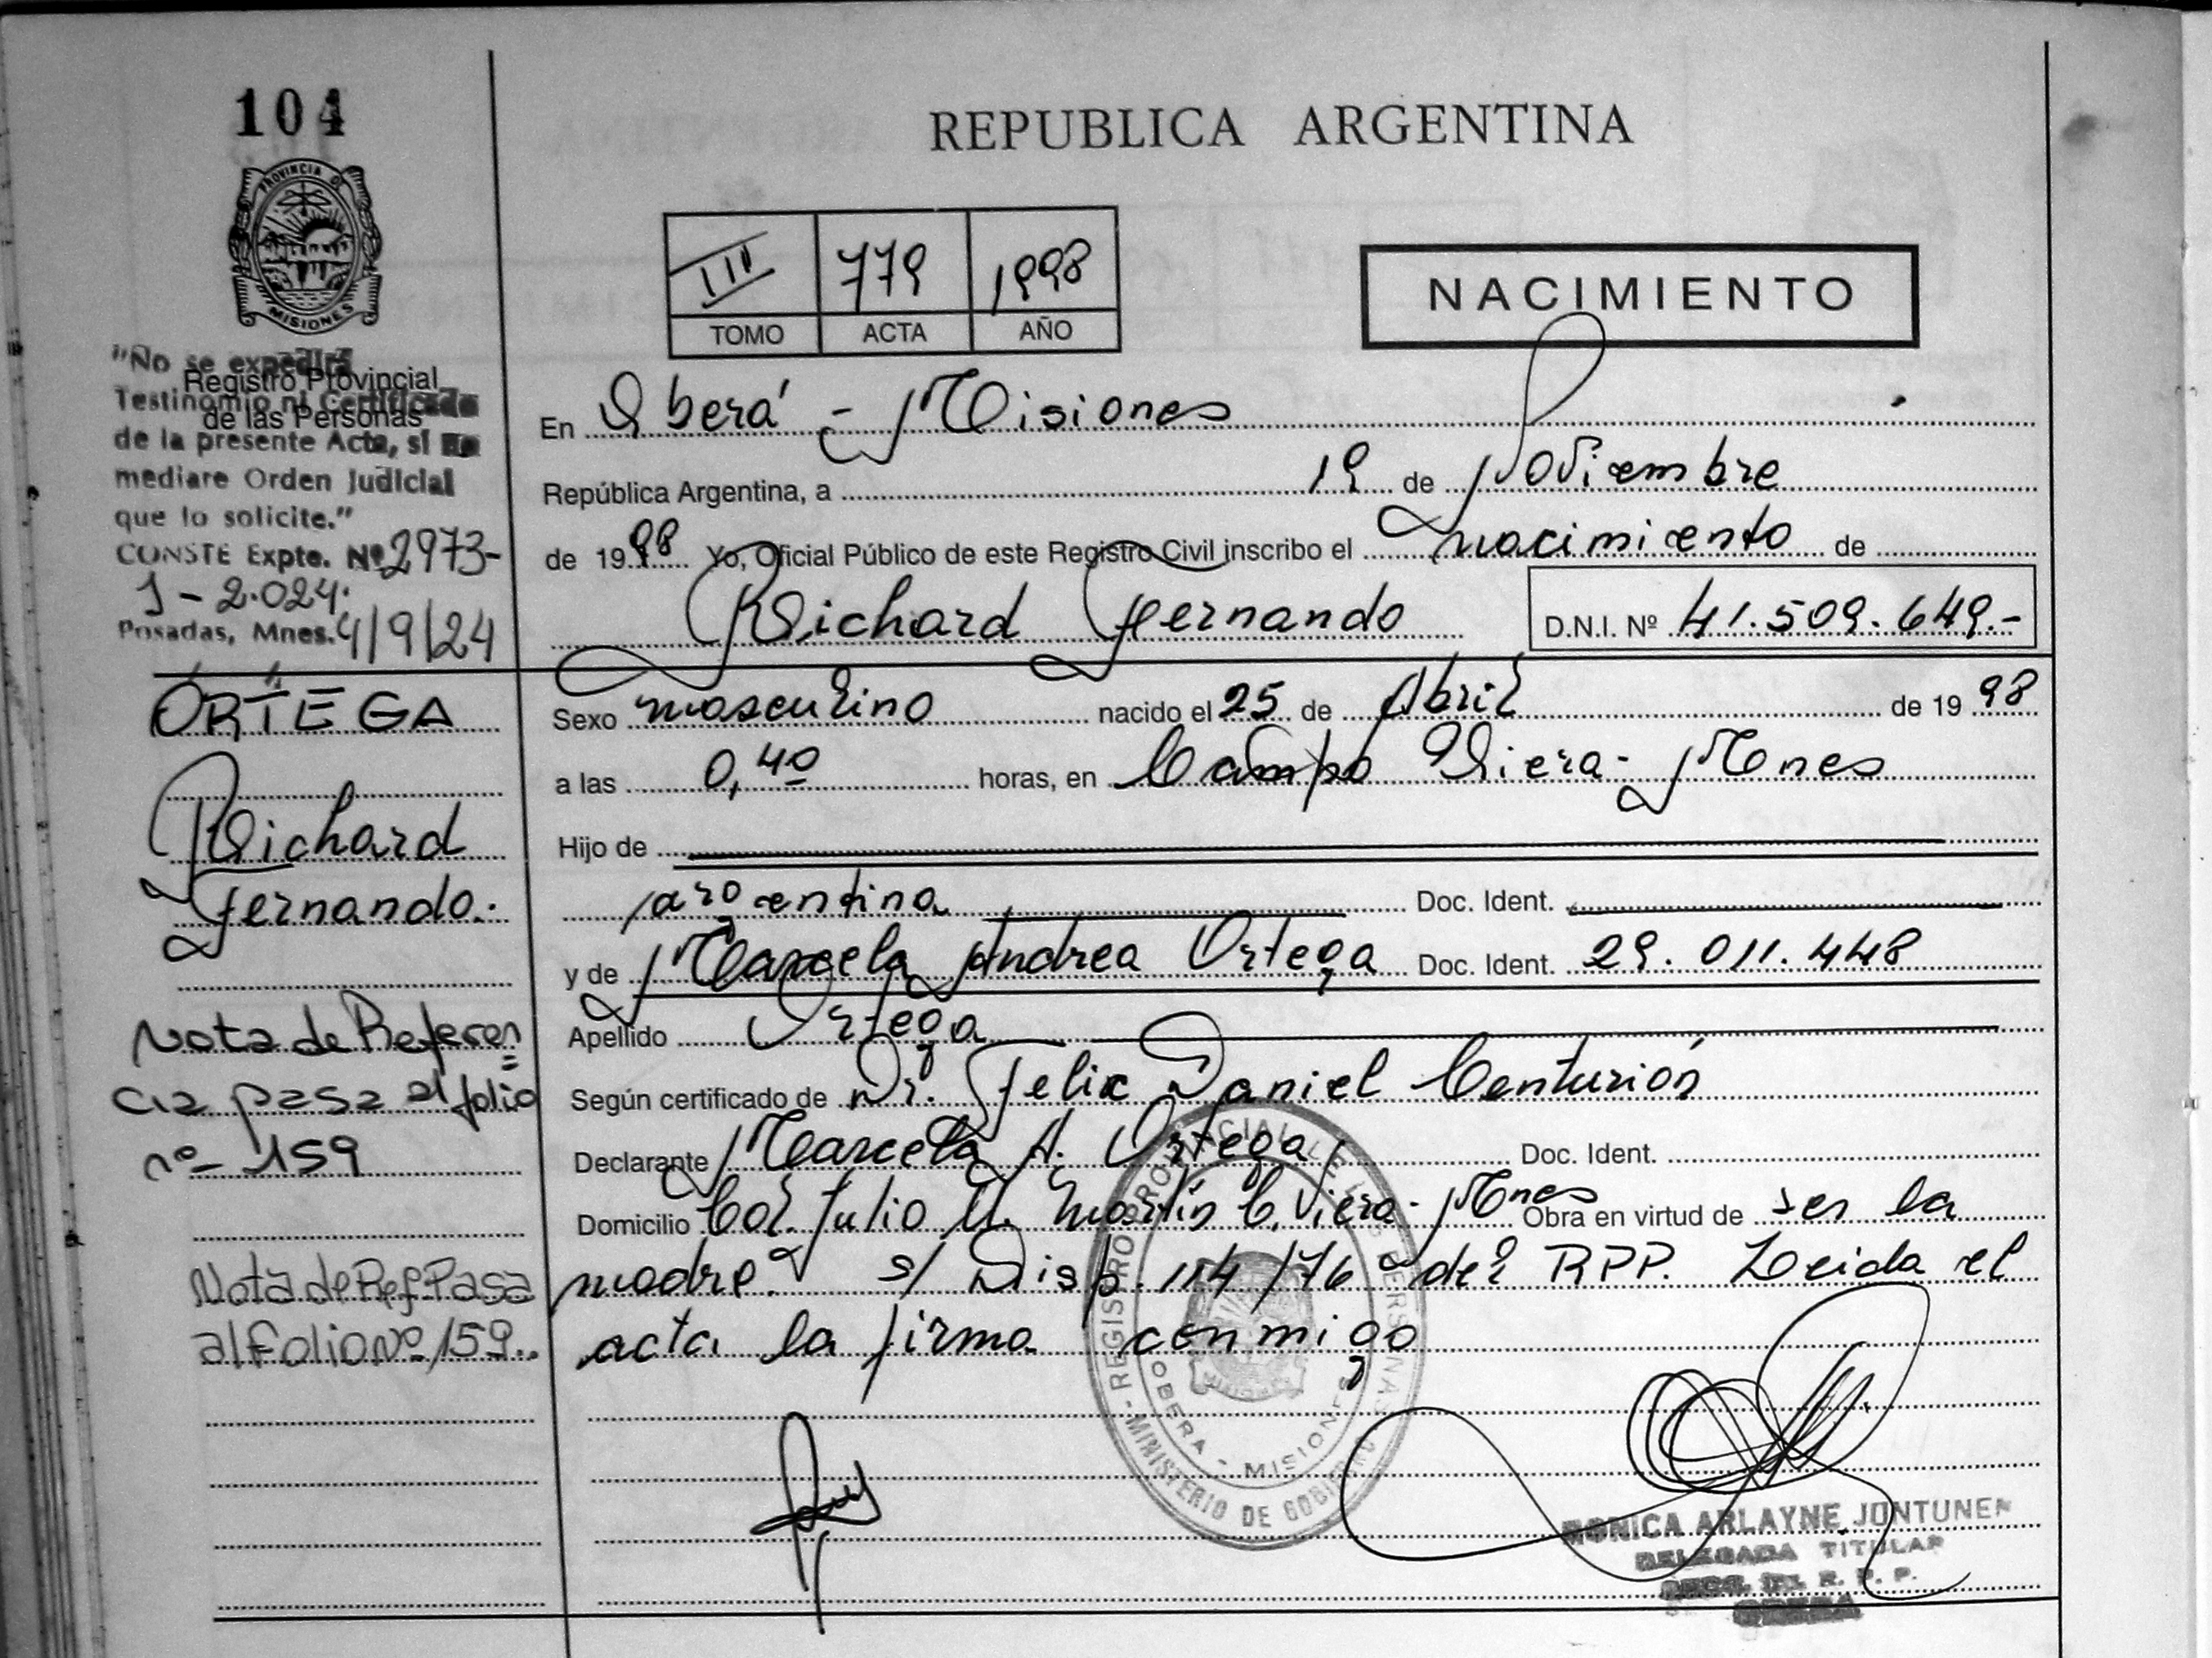 104
REPUBLICA ARGENTINA
PROVINCIA DE
MISIONES
III 779 1998
TOMO ACTA AÑO
NACIMIENTO
"No se expedirá
Registro Provincial
Testinomio ni Certificado
de las Personas
de la presente Acta, si no
mediare Orden Judicial
que lo solicite."
CONSTE Expte. Nº 2973-
J-2.024.
Posadas, Mnes. 4/9/24
En Oberá - Misiones
República Argentina, a 19 de Noviembre
de 1998 Yo, Oficial Público de este Registro Civil inscribo el nacimiento de
Richard Fernando D.N.I. Nº 41.509.649.-
ORTEGA
Richard
Fernando.
Nota de Referen=
cia pasa al folio
nº- 159
Nota de Ref. Pasa
al Folio Nº 159..
Sexo masculino nacido el 25 de Abril de 1998
a las 0,40 horas, en Campo Viera - Mnes
Hijo de
argentina Doc. Ident.
y de Marcela Andrea Ortega Doc. Ident. 29.011.448
Apellido Ortega
Según certificado de Dr. Felix Daniel Centurión
Declarante Marcela A. Ortega Doc. Ident.
Domicilio Col. Julio U. Martín C. Viera - Mnes Obra en virtud de ser la
madre. s/ Disp. 114/76 del RPP. Leida el
acta la firma conmigo
REGISTRO PROVINCIAL DE LAS PERSONAS
OBERA - MISIONES
MINISTERIO DE GOBIERNO
MONICA ARLAYNE JONTUNEN
DELEGADA TITULAR
R. P. P.